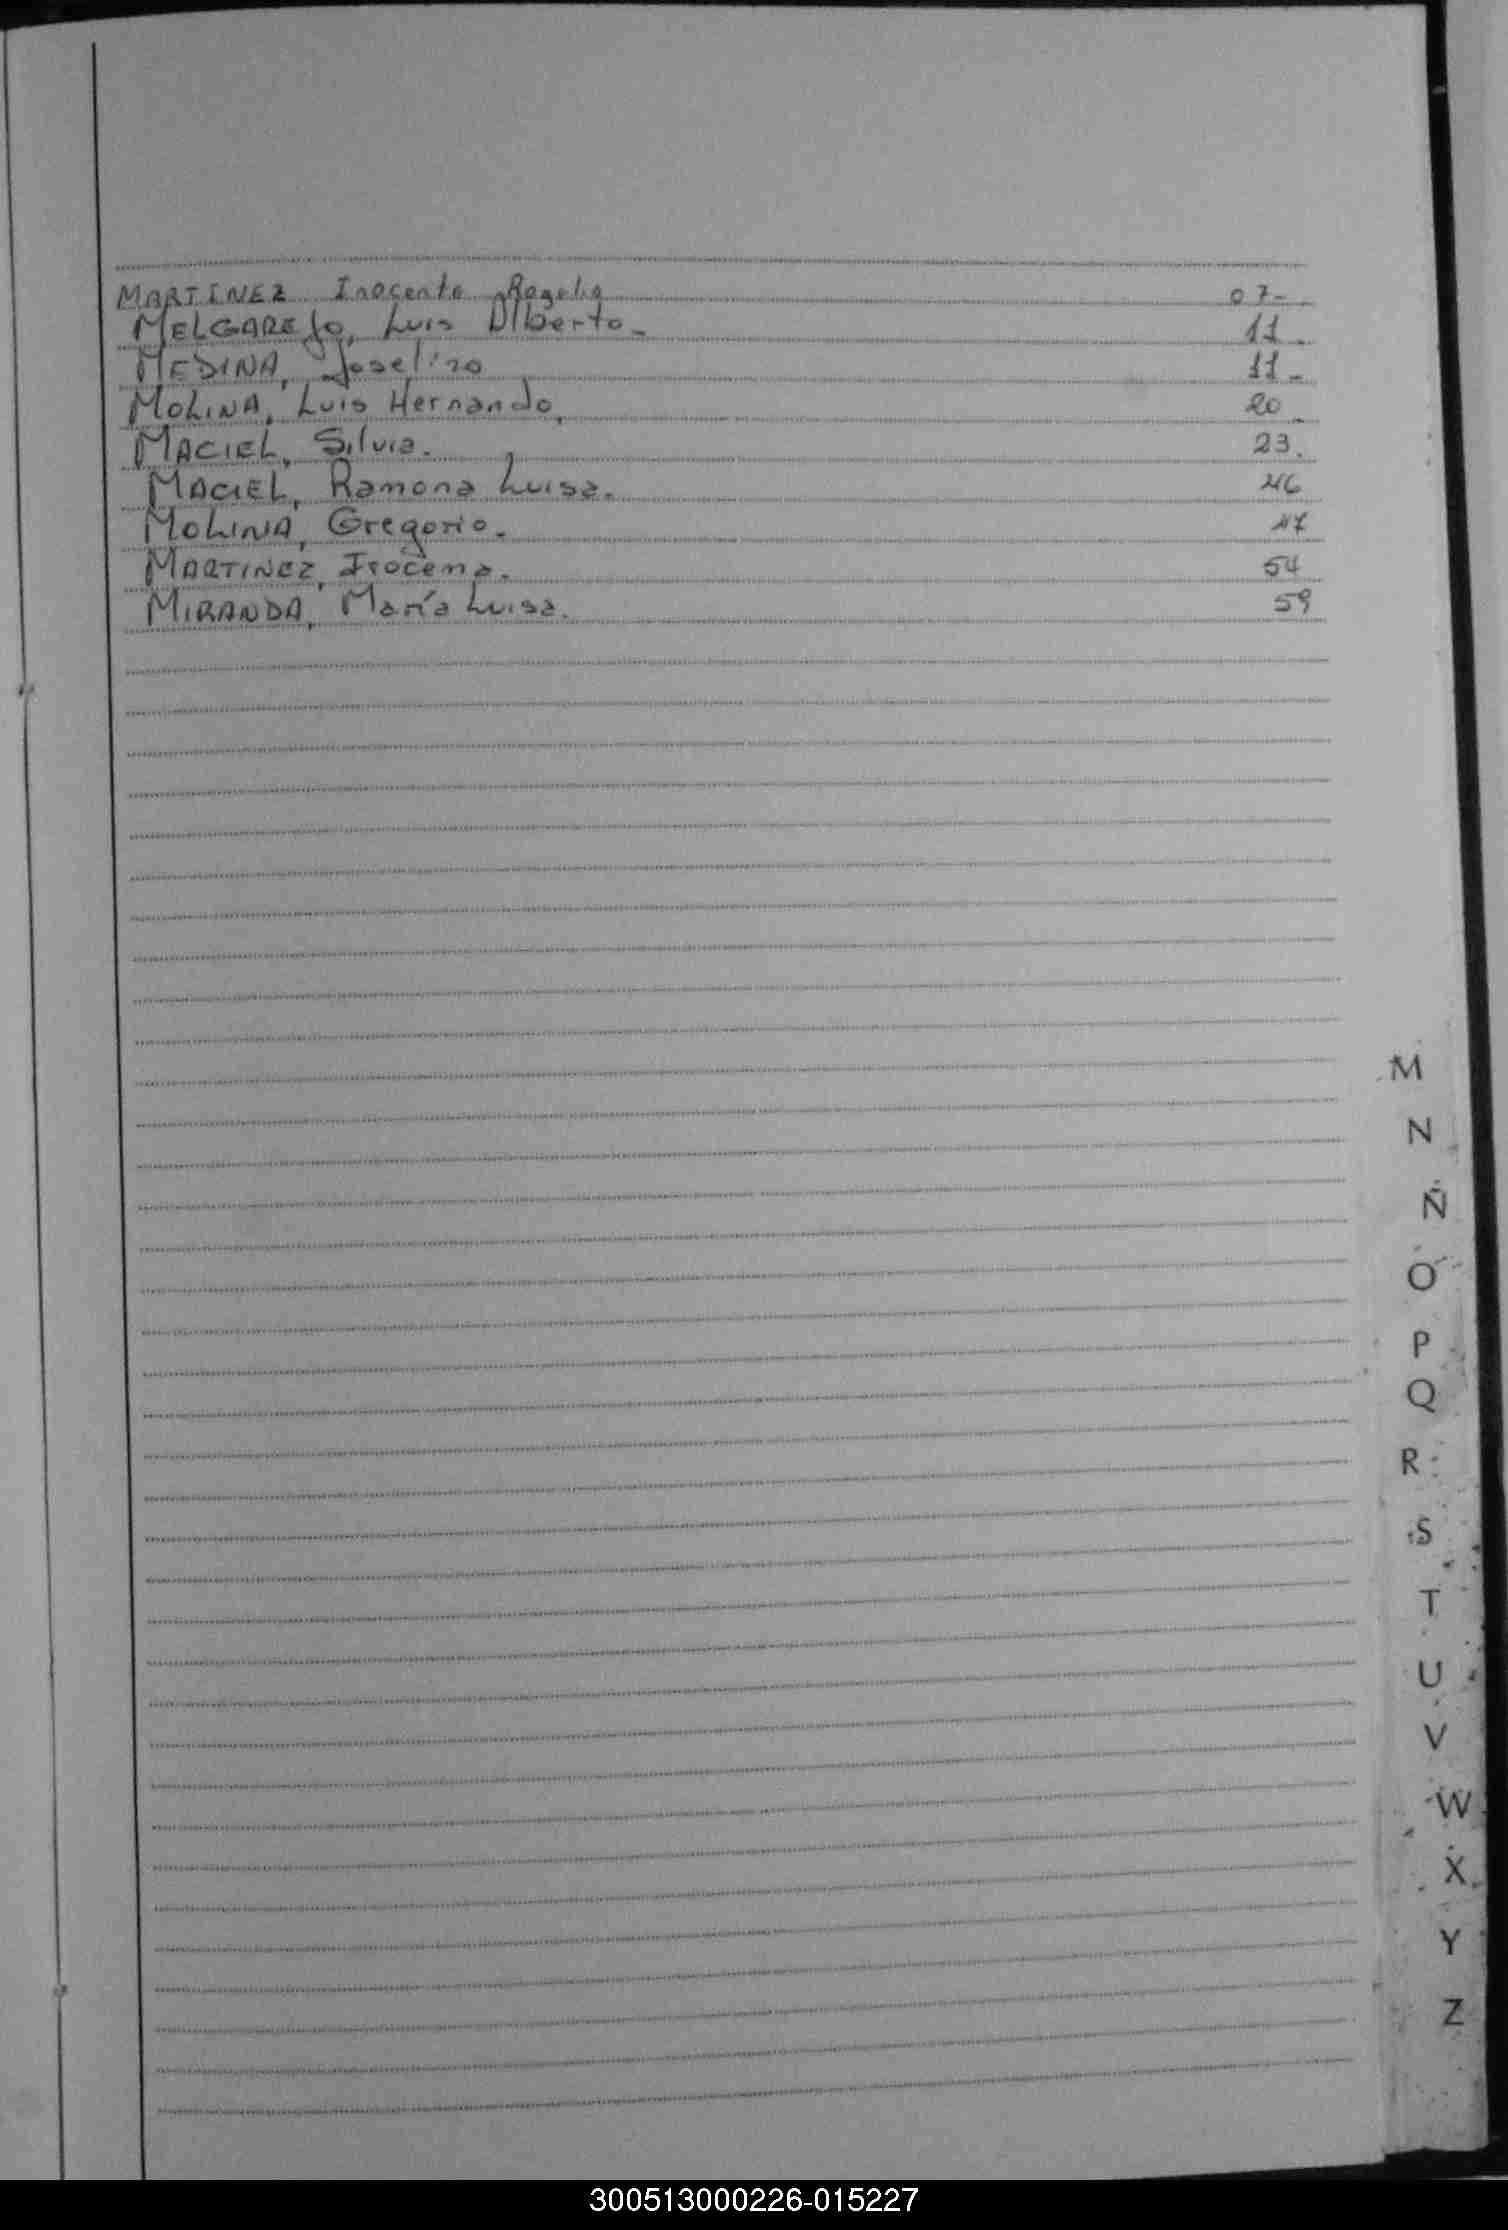 MARTINEZ Inocente Rogelio 07-
MELGAREJO, Luis Alberto- 11-
MEDINA, Joselino 11-
MOLINA, Luis Hernando, 20-
MACIEL, Silvia. 23.
MACIEL, Ramona Luisa. 46
MOLINA, Gregorio. 47
MARTINEZ, 54
MIRANDA, María Luisa. 59
M
N
Ñ
O
P
Q
R
S
T
U
V
W
X
Y
Z
300513000226-015227